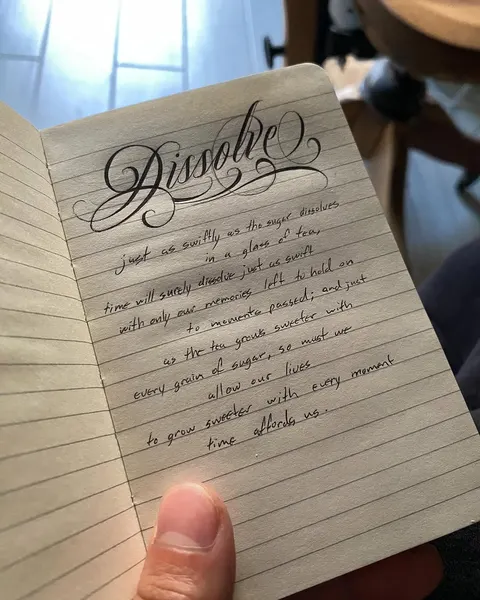 Dissolve
just as swiftly as the sugar dissolves
in a glass of tea,
time will surely dissolve just as swift
with only our memories left to hold on
to moments passed; and just
as the tea grows sweeter with
every grain of sugar, so must we
allow our lives
to grow sweeter with every moment
time affords us.